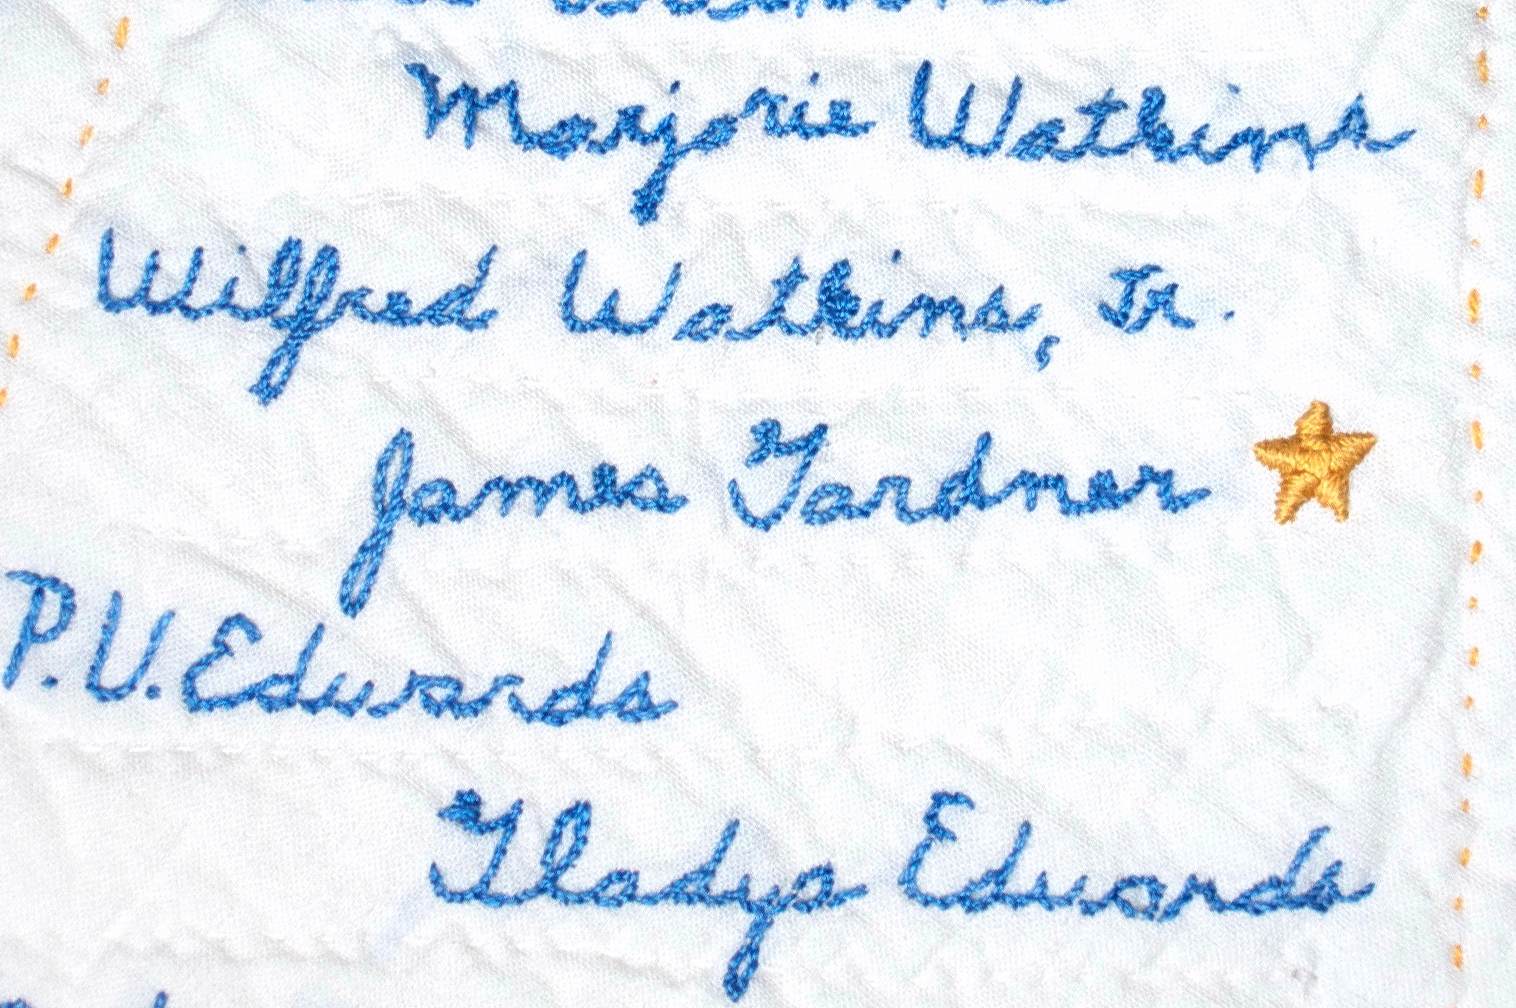 Marjorie Watkins
Wilfred Watkins, Jr.
James Gardner
P.V. Edwards
Gladys Edwards